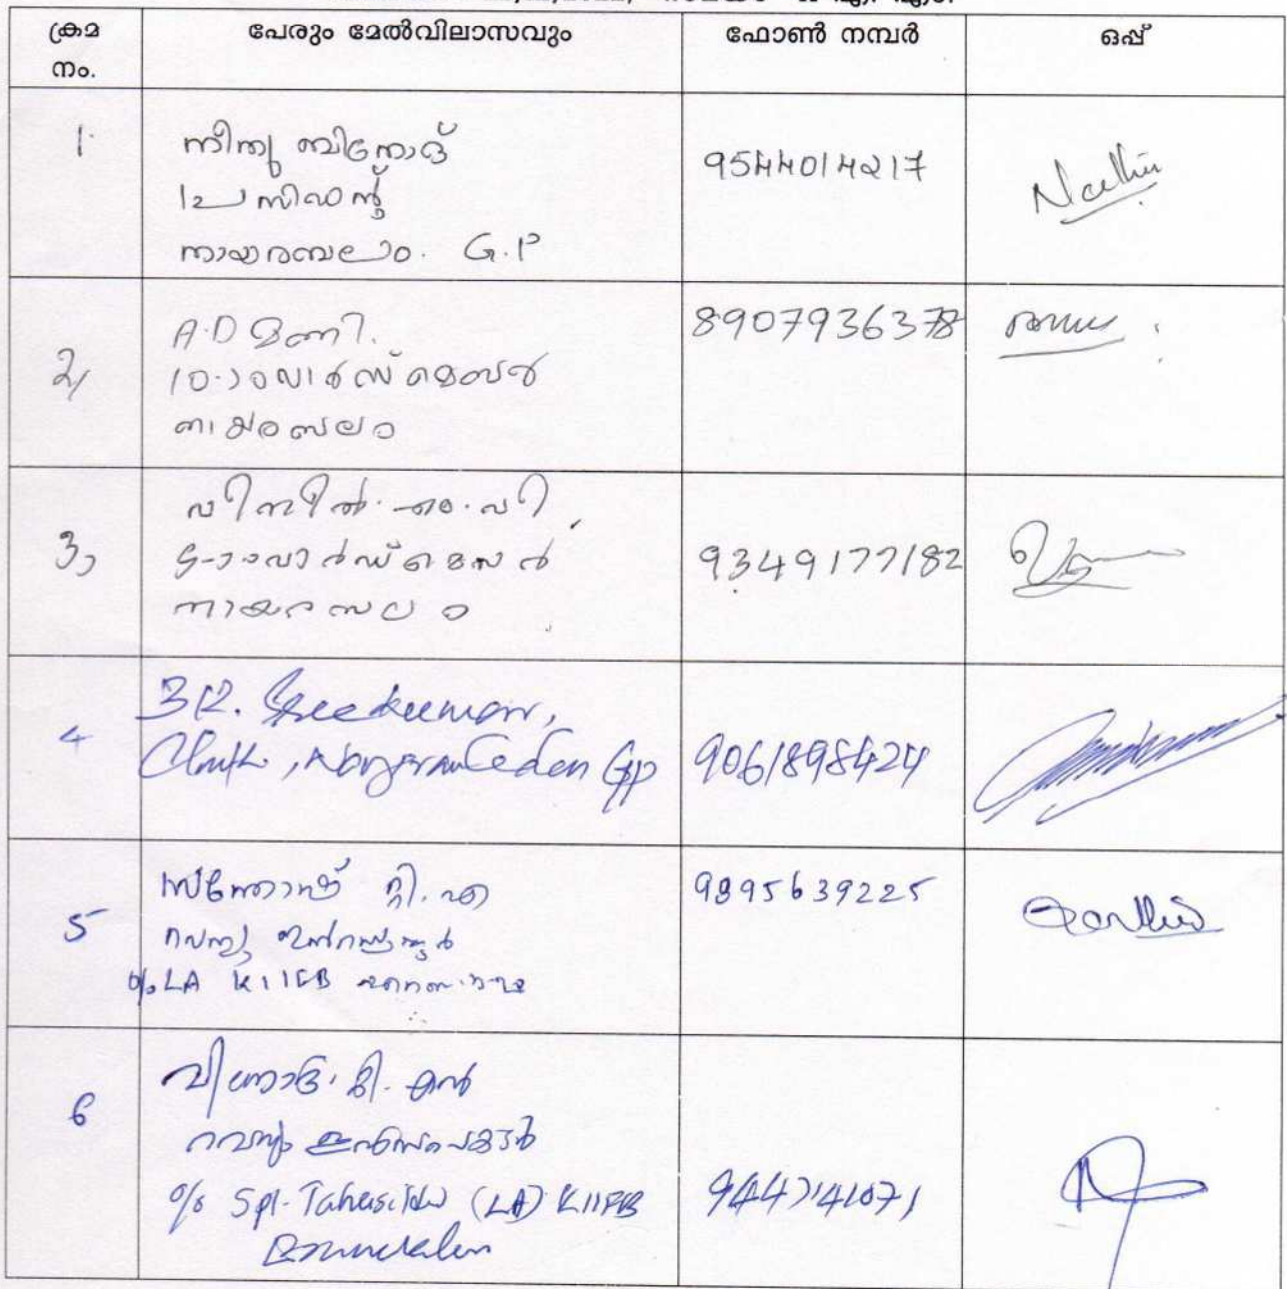 ക്രമ നം.
പേരും മേൽവിലാസവും
ഫോൺ നമ്പർ
ഒപ്പ്
1.
നീതു ബിനോദ്
പ്രസിഡന്റ്
നായരമ്പലം. G.P
9544014217
2,
A.D മണി.
10-ാം വാർഡ് മെമ്പർ
നായരമ്പലം
8907936378
3,
9-ാം വാർഡ് മെമ്പർ
നായരമ്പലം
9349177182
4
BR. Sreekumar,
9061898424
5
സന്തോഷ് റ്റി. എ
റവന്യു ഇൻസ്പെക്ടർ
% LA KIIFB എറണാകുളം
9895639225
6
വിനോദ്. മി. എൻ
റവന്യൂ ഇൻസ്പെക്ടർ
% Spl. Tahasildar (LA) KIIFB
Ernakulam
9447141071